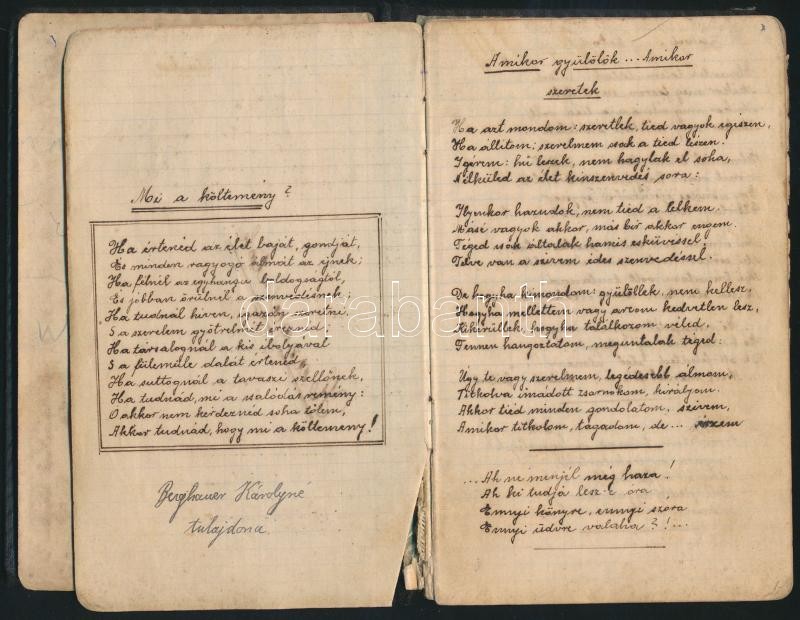 Mi a költemény?
Ha értenéd az élet baját, gondját,
És minden ragyogó álmát az éjnek;
Ha félnél az egyhangu boldogságtól,
És jobban örülnél a szenvedésnek;
Ha tudnál híven, igazán szeretni,
S a szerelem gyötrelmét éreznéd;
Ha társalognál a kis ibolyával
S a fülemüle dalát értenéd,
Ha suttognál a tavaszi szellőnek,
Ha tudnád, mi a csalódás, remény:
O akkor nem kérdeznéd soha tőlem,
Akkor tudnád, hogy mi a költemény!
Berghauer Károlyné
tulajdona
Amikor gyűlölök ... Amikor
szeretek
Ha azt mondom: szeretlek, tied vagyok egészen,
Ha állitom; szerelmem csak a tied leszen.
Igérem: hű leszek, nem hagylak el soha,
Nélküled az élet kinszenvedés sora:
Ilyenkor hazudok, nem tiéd a lelkem.
Másé vagyok akkor, más bir akkor engem.
Téged csak áltatlak hamis esküvéssel;
Telve van a szivem édes szenvedéssel.
De hogyha kimondom: gyűlöllek, nem kellesz,
Hogyha melletted vagy arcom kedvetlen lesz,
Kikerüllek, hogyha találkozom véled,
Fennen hangoztatom, meguntalak téged:
Úgy te vagy szerelmem, legédesebb álmom,
Titkolva imádott zsarnokom, királyom.
Akkor tied minden gondolatom, szivem,
Amikor titkolom, tagadom, de...
...Ah ne menjél még haza!
Ah ki tudja lesz-e óra
Ennyi könyre, ennyi szóra
Ennyi üdvre valaha?!...
darabanth